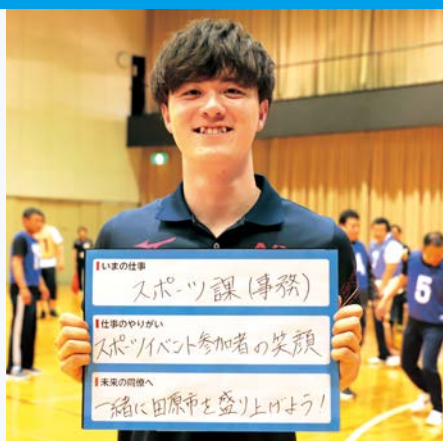 いまの仕事
スポーツ課(事務)
仕事のやりがい
スポーツイベント参加者の笑顔
未来の同僚へ
一緒に田原市を盛り上げよう!
5